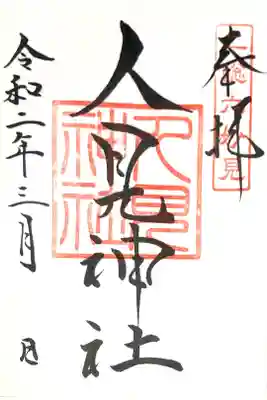 奉拝
人見神社
人見
神社
令和二年三月 日